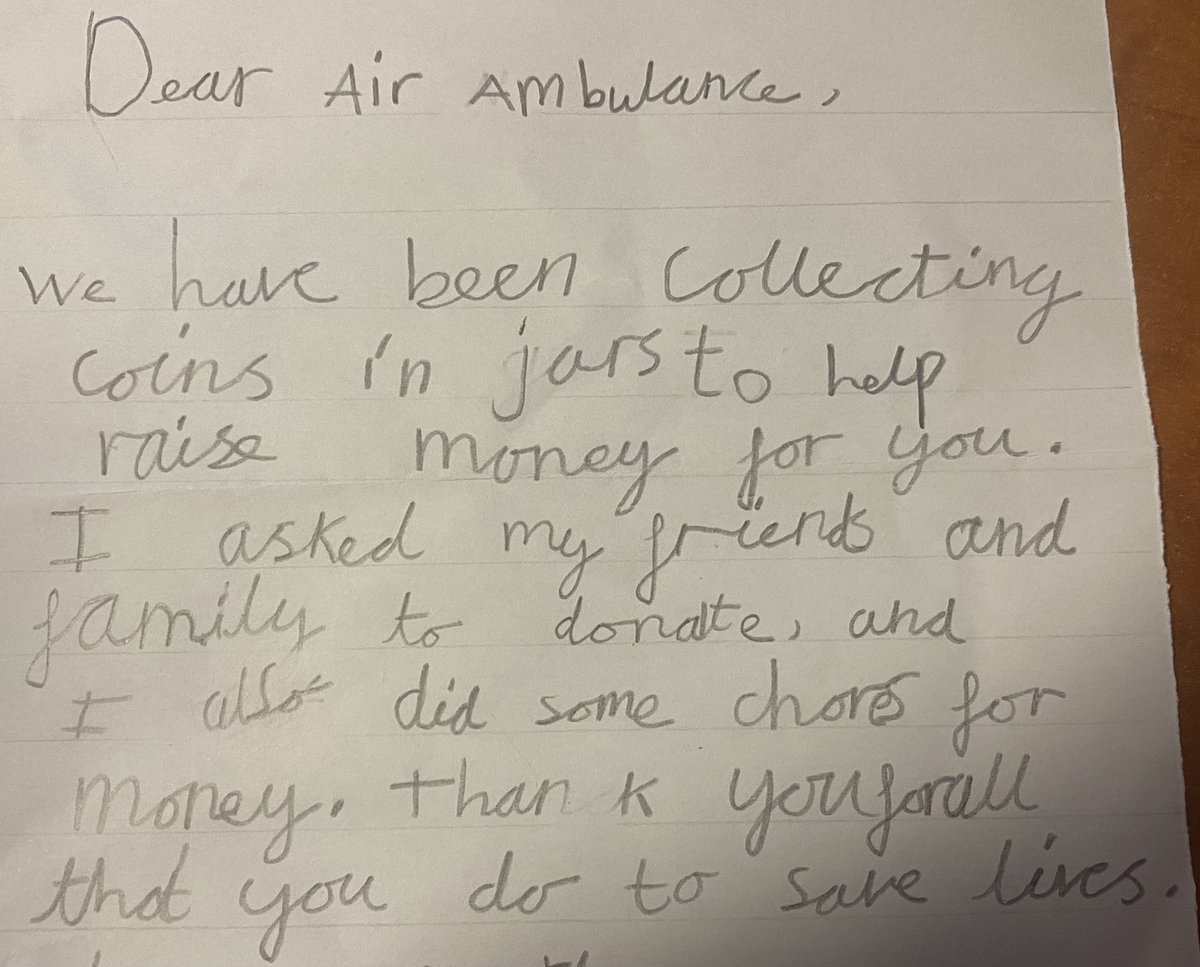 Dear Air Ambulance,
We have been collecting
coins in jars to help
raise money for you.
I asked my friends and
family to donate, and
I also did some chores for
money. Thank you for all
that you do to save lives.